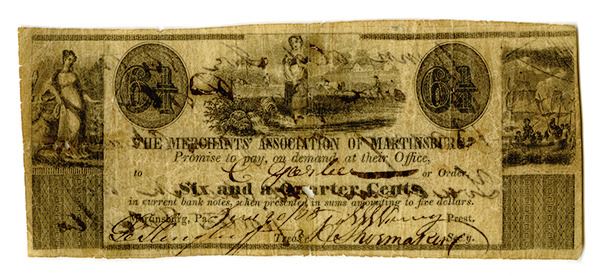 6¼ 6¼
THE MERCHANTS' ASSOCIATION OF MARTINSBURG
Promise to pay, on demand, at their Office,
to or Order,
Six and a Quarter Cents,
in current bank notes, when presented in sums amounting to five dollars.
Martinsburg, Pa. Prest.
Treas. Shoemaker Sec'y.